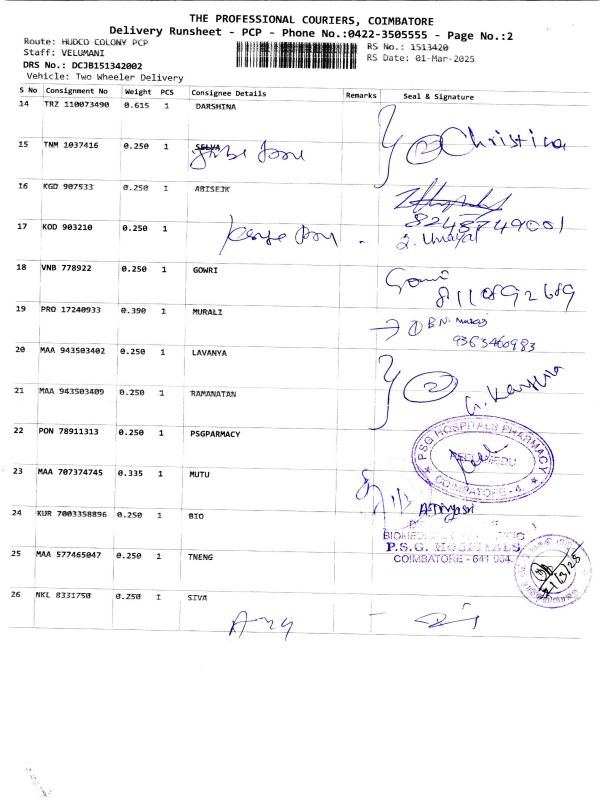 THE PROFESSIONAL COURIERS, COIMBATORE
Delivery Runsheet - PCP - Phone No.:0422-3505555 - Page No.:2
Route: HUDCO COLONY PCP
Staff: VELUMANI
DRS No.: DCJB151342002
Vehicle: Two Wheeler Delivery
RS No.: 1513420
RS Date: 01-Mar-2025
S No Consignment No Weight PCS Consignee Details Remarks Seal & Signature
14 TRZ 110073490 0.615 1 DARSHINA
15 TNM 1037416 0.250 1 SELVA
2 Christina
16 KGD 907533 0.250 1 ABISEIK
8248749001
17 KOD 903210 0.250 1
18 VNB 778922 0.250 1 GOWRI
8110892689
19 PRO 17240933 0.390 1 MURALI
9363460983
20 MAA 943503402 0.250 1 LAVANYA
2
21 MAA 943503409 0.250 1 RAMANATAN
22 PON 78911313 0.250 1 PSGPARMACY
PSG HOSPITALS PHARMACY
PEELAMEDU
COIMBATORE - 4.
23 MAA 707374745 0.335 1 MUTU
24 KUR 7003358896 0.250 1 BIO
P.S.G. HOSPITALS
COIMBATORE - 641 004.
25 MAA 577465047 0.250 1 TNENG
26 NKL 8331750 0.250 1 SIVA